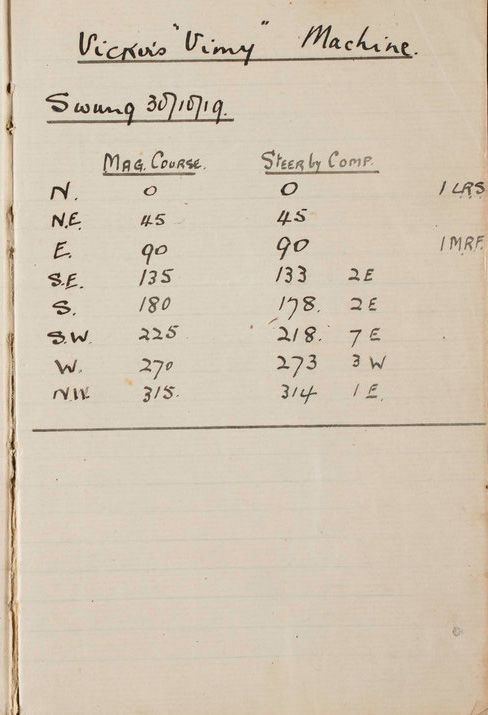 Vickers "Vimy" Machine.
Swung 30/10/19.
Mag. Course. Steer by Comp.
N. 0 0 1 LRS
N.E. 45 45
E. 90 90 1 MRF.
S.E. 135 133 2 E
S. 180 178. 2 E
S.W. 225 218. 7 E
W. 270 273 3 W
NW. 315. 314 1 E.